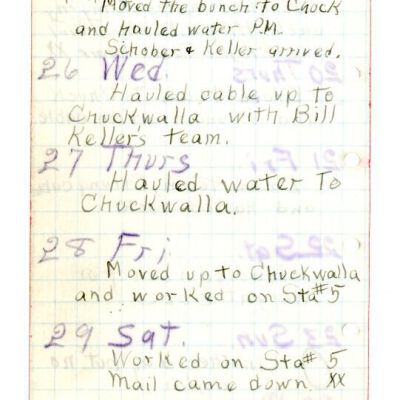 Moved the bunch to Chuck
and hauled water P.M.
Schober & Keller arrived.
26 Wed.
Hauled cable up to
Chuckwalla with Bill
Keller's team.
27 Thurs
Hauled water To
Chuckwalla.
28 Fri
Moved up to Chuckwalla
and worked on Sta#5
29 Sat.
Worked on Sta# 5
Mail came down. XX